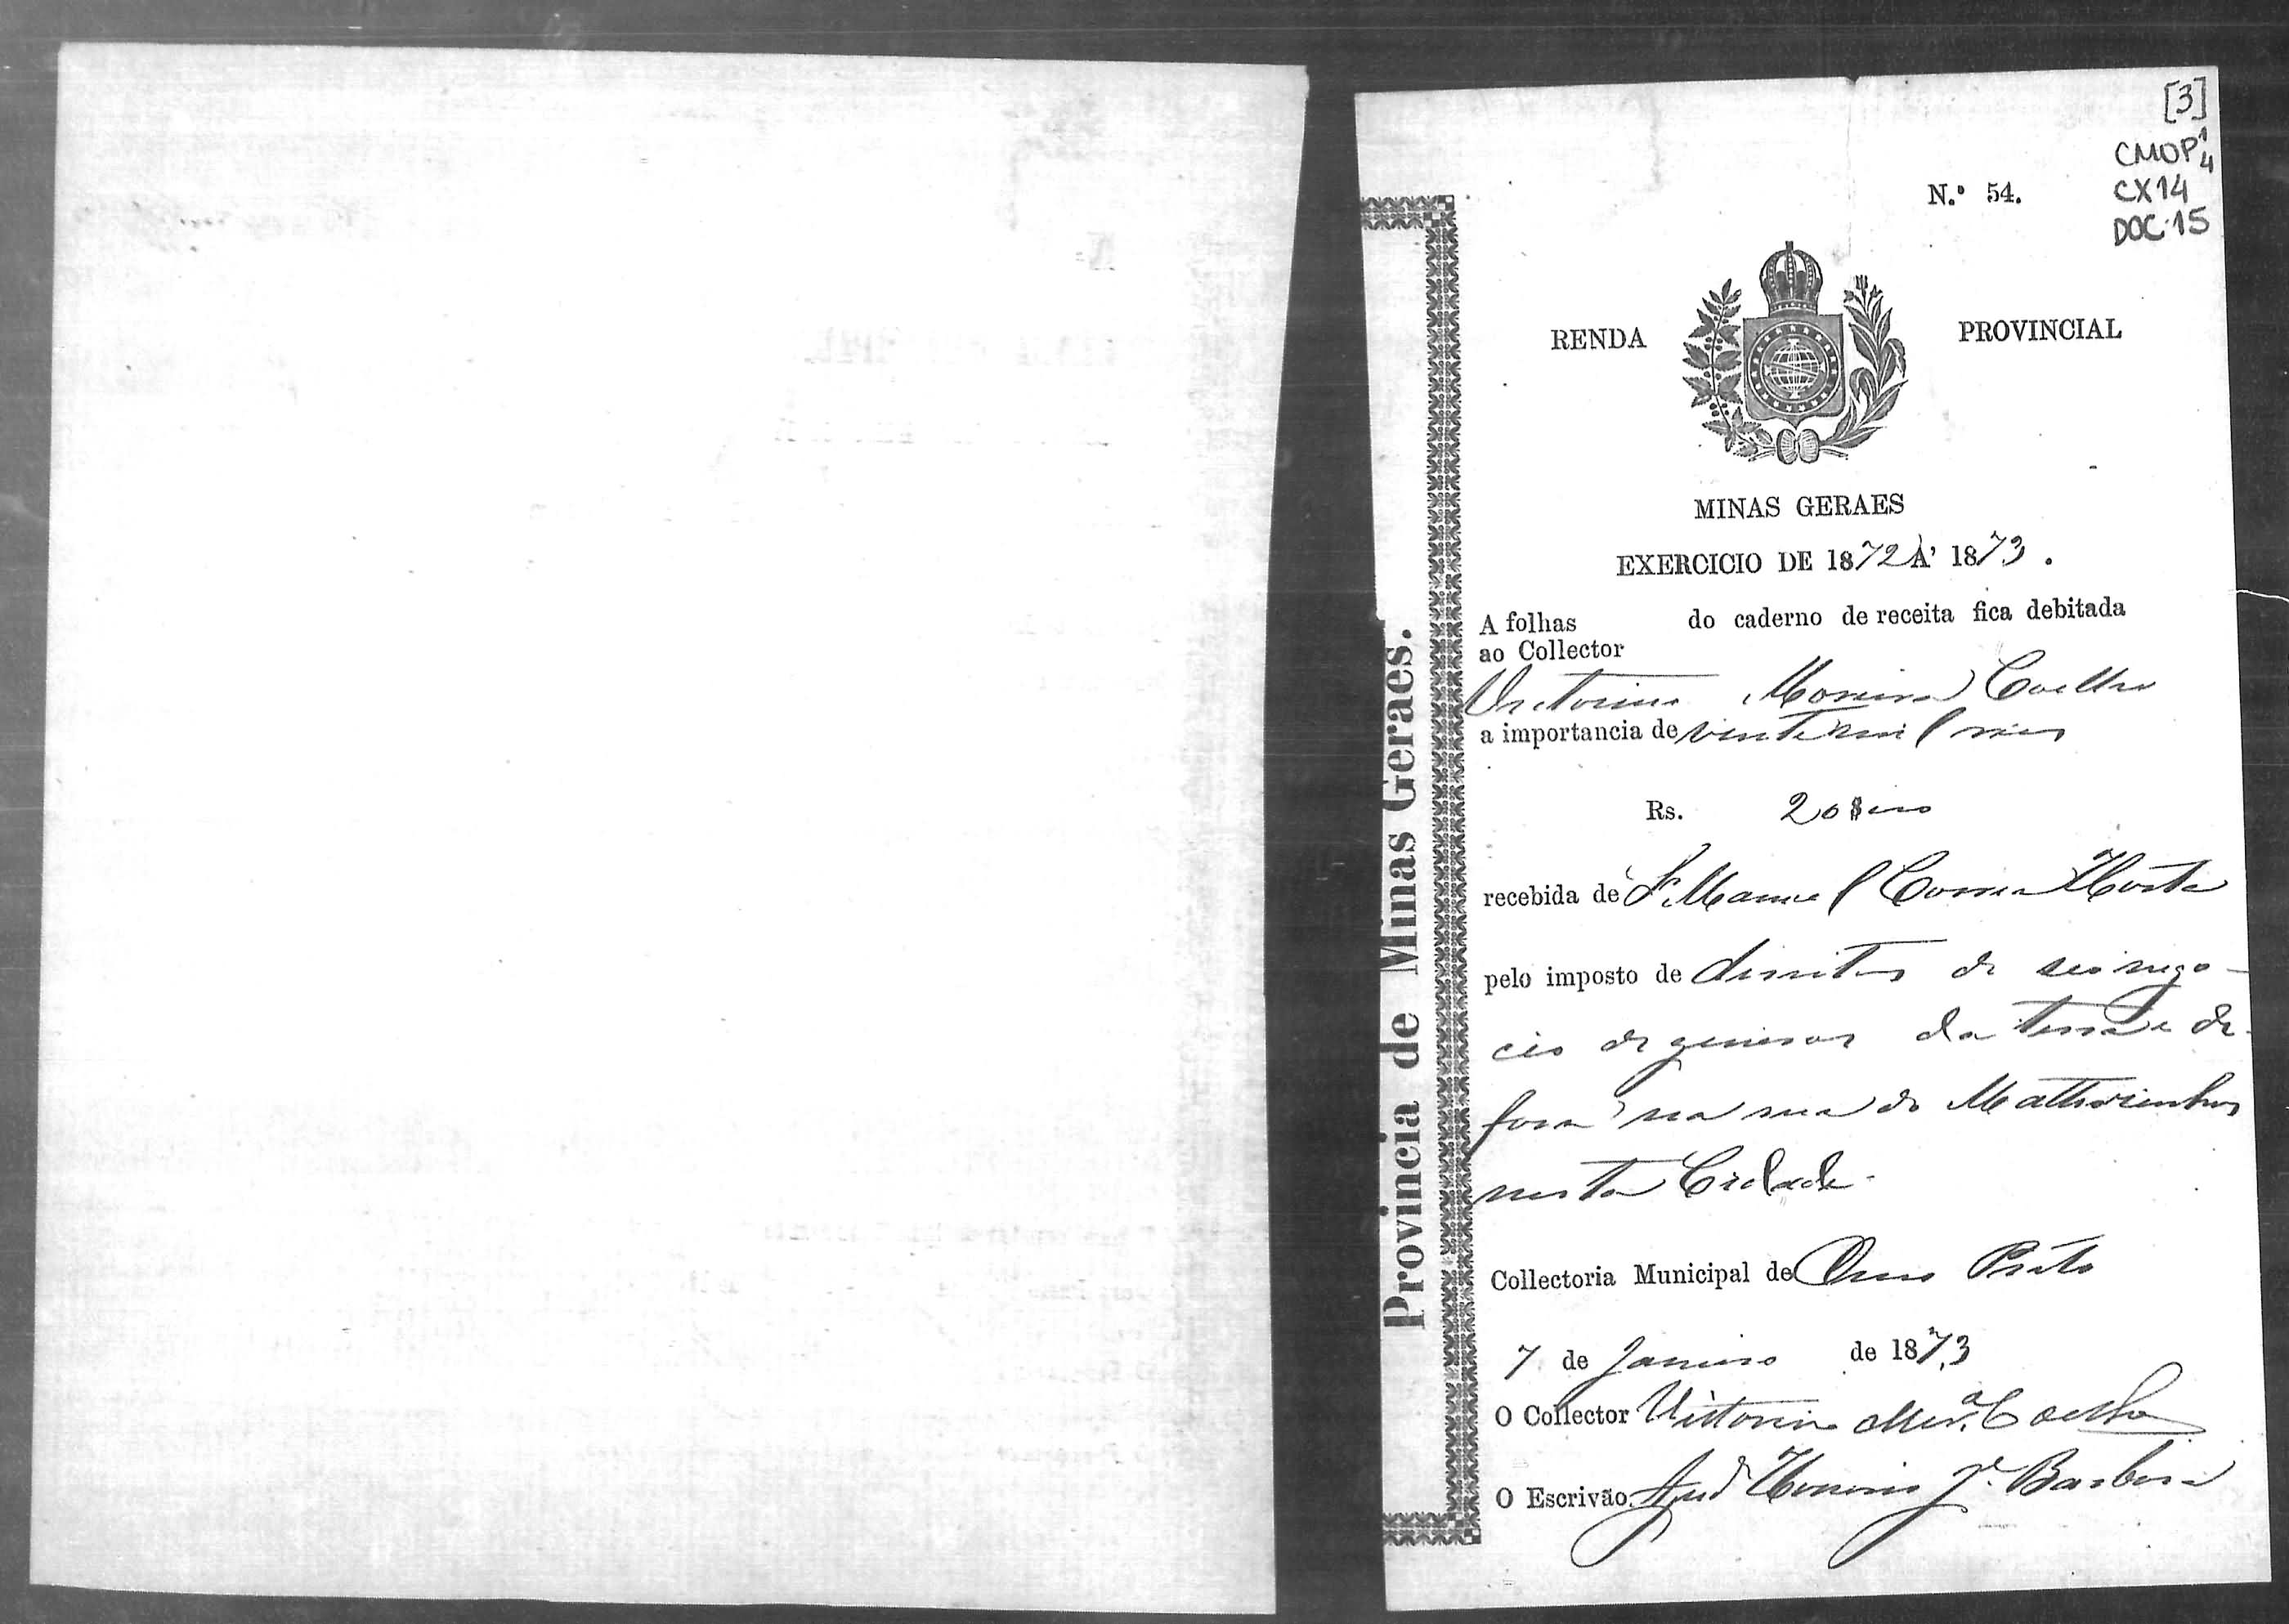 [3]
CMOP 1/4
CX14
DOC. 15
N.º 54.
RENDA PROVINCIAL
MINAS GERAES
EXERCICIO DE 1872 A' 1873.
A folhas do caderno de receita fica debitada
ao Collector
Victorino Moreira Coelho
a importancia de vinte mil reis
Rs. 20$000
recebida de Manoel Correa Horta
pelo imposto de direitos de seo nego-
cio de generos da terra e de
fora na rua do Mattosinhos
nesta Cidade
Collectoria Municipal de Ouro Preto
7 de Janeiro de 1873
O Collector Victorino Mer.ª Coelho
O Escrivão, Honorio J.e Barbosa
Provincia de Minas Geraes.